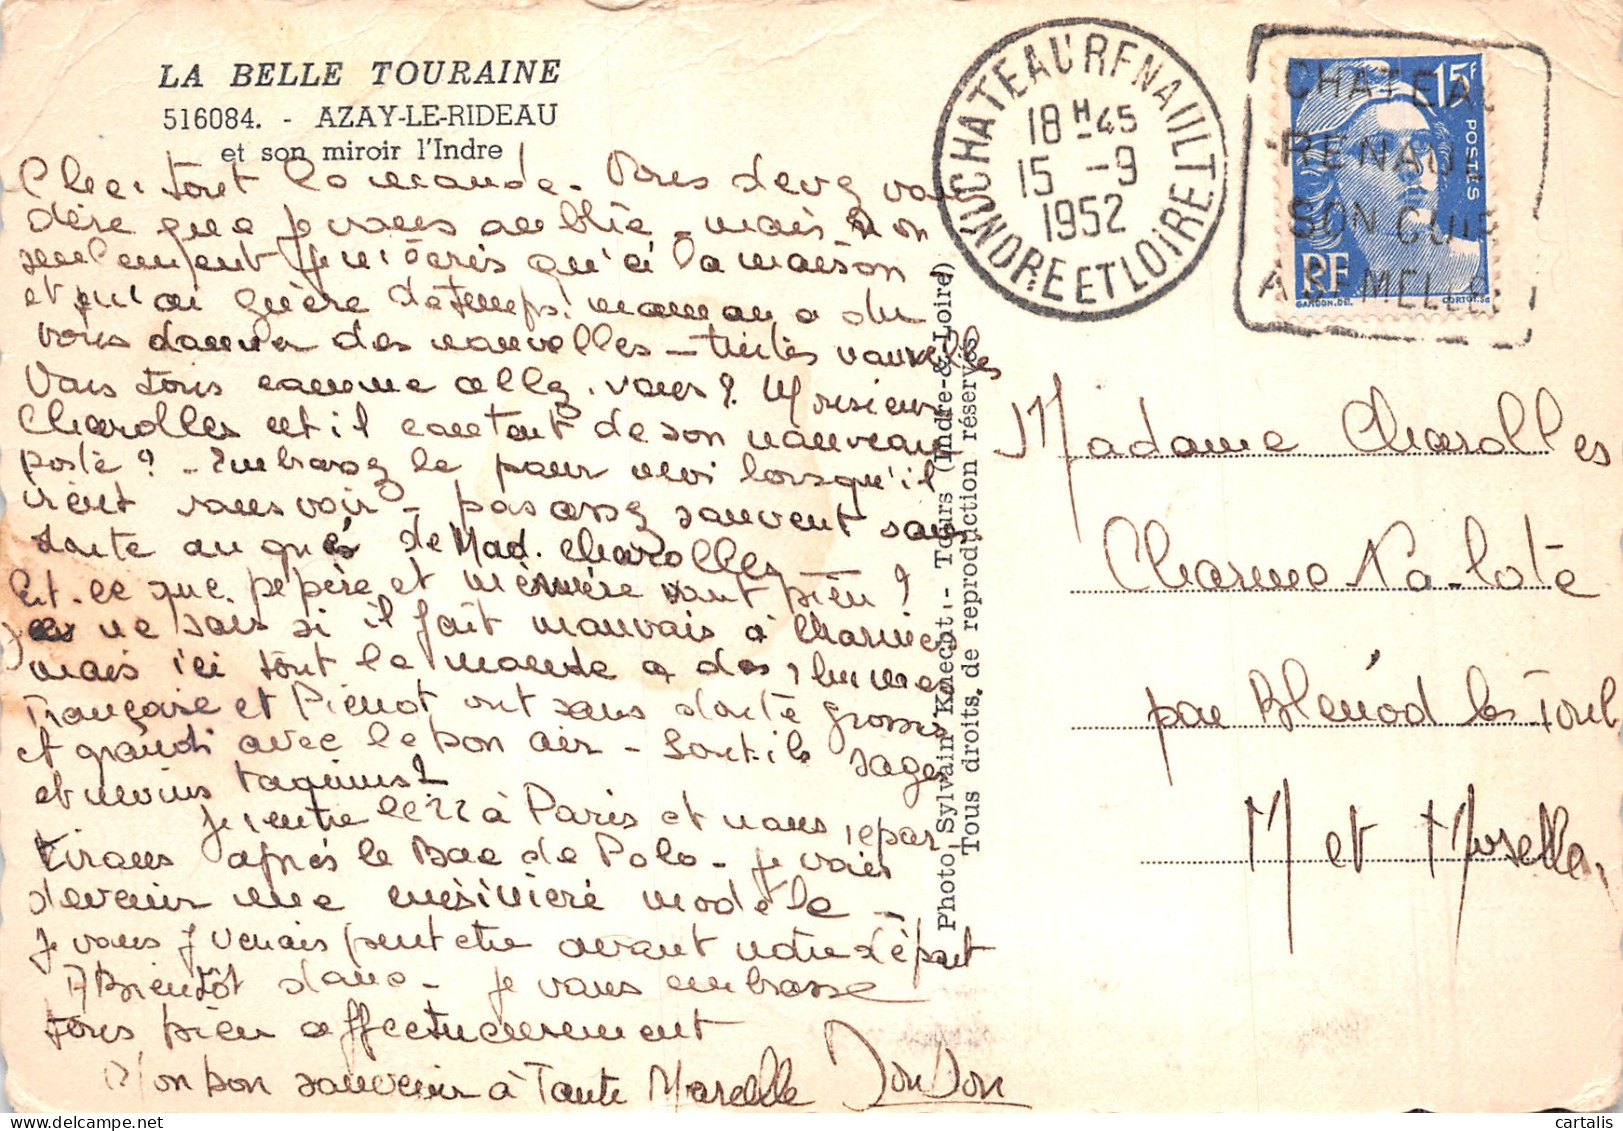 LA BELLE TOURAINE
516084. - AZAY-LE-RIDEAU
et son miroir l'Indre
Cher tout le monde - Vous devez vous
dire que je vous oublie - mais non
seulement je n'écris qu'à la maison
et n'ai guère de temps. maman a du
vous donner des nouvelles -
Vous tous comme allez-vous ? Monsieur
Charolles est il content de son nouveau
poste ? - Embrassez le pour moi lorsqu'il
vient vous voir - pas assez souvent sans
doute au gré de Mad. Charolles -
Est-ce que pépère et mémère vont bien ?
Je ne sais si il fait mauvais à Charmes
mais ici tout le monde a des rhumes
Françoise et Pierrot ont sans doute grossis
et grandi avec le bon air - Sont-ils sages
et moins taquins ?
Je rentre le 22 à Paris et nous repar
tirons après le Bac de Polo - je vais
devenir une
modèle -
Je vous
peut etre avant notre départ
A Bientôt donc - je vous embrasse
tous bien affectueusement
Mon bon souvenir à Tante Marcelle
DonDon
Photo, Sylvain Knecht. - Tours (Indre-&-Loire)
Tous droits de reproduction réservés
CHATEAURENAULT
18 H 45
15 - 9
1952
INDRE ET LOIRE
CHATEAU
RENAUL
SON CUIR
A SEMELLE
15F
POSTES
RF
GANDON. DEL.
CORTOT. SC
Madame Charolles
Charmes La-Côte
par Blénod les Toul
M et Moselle